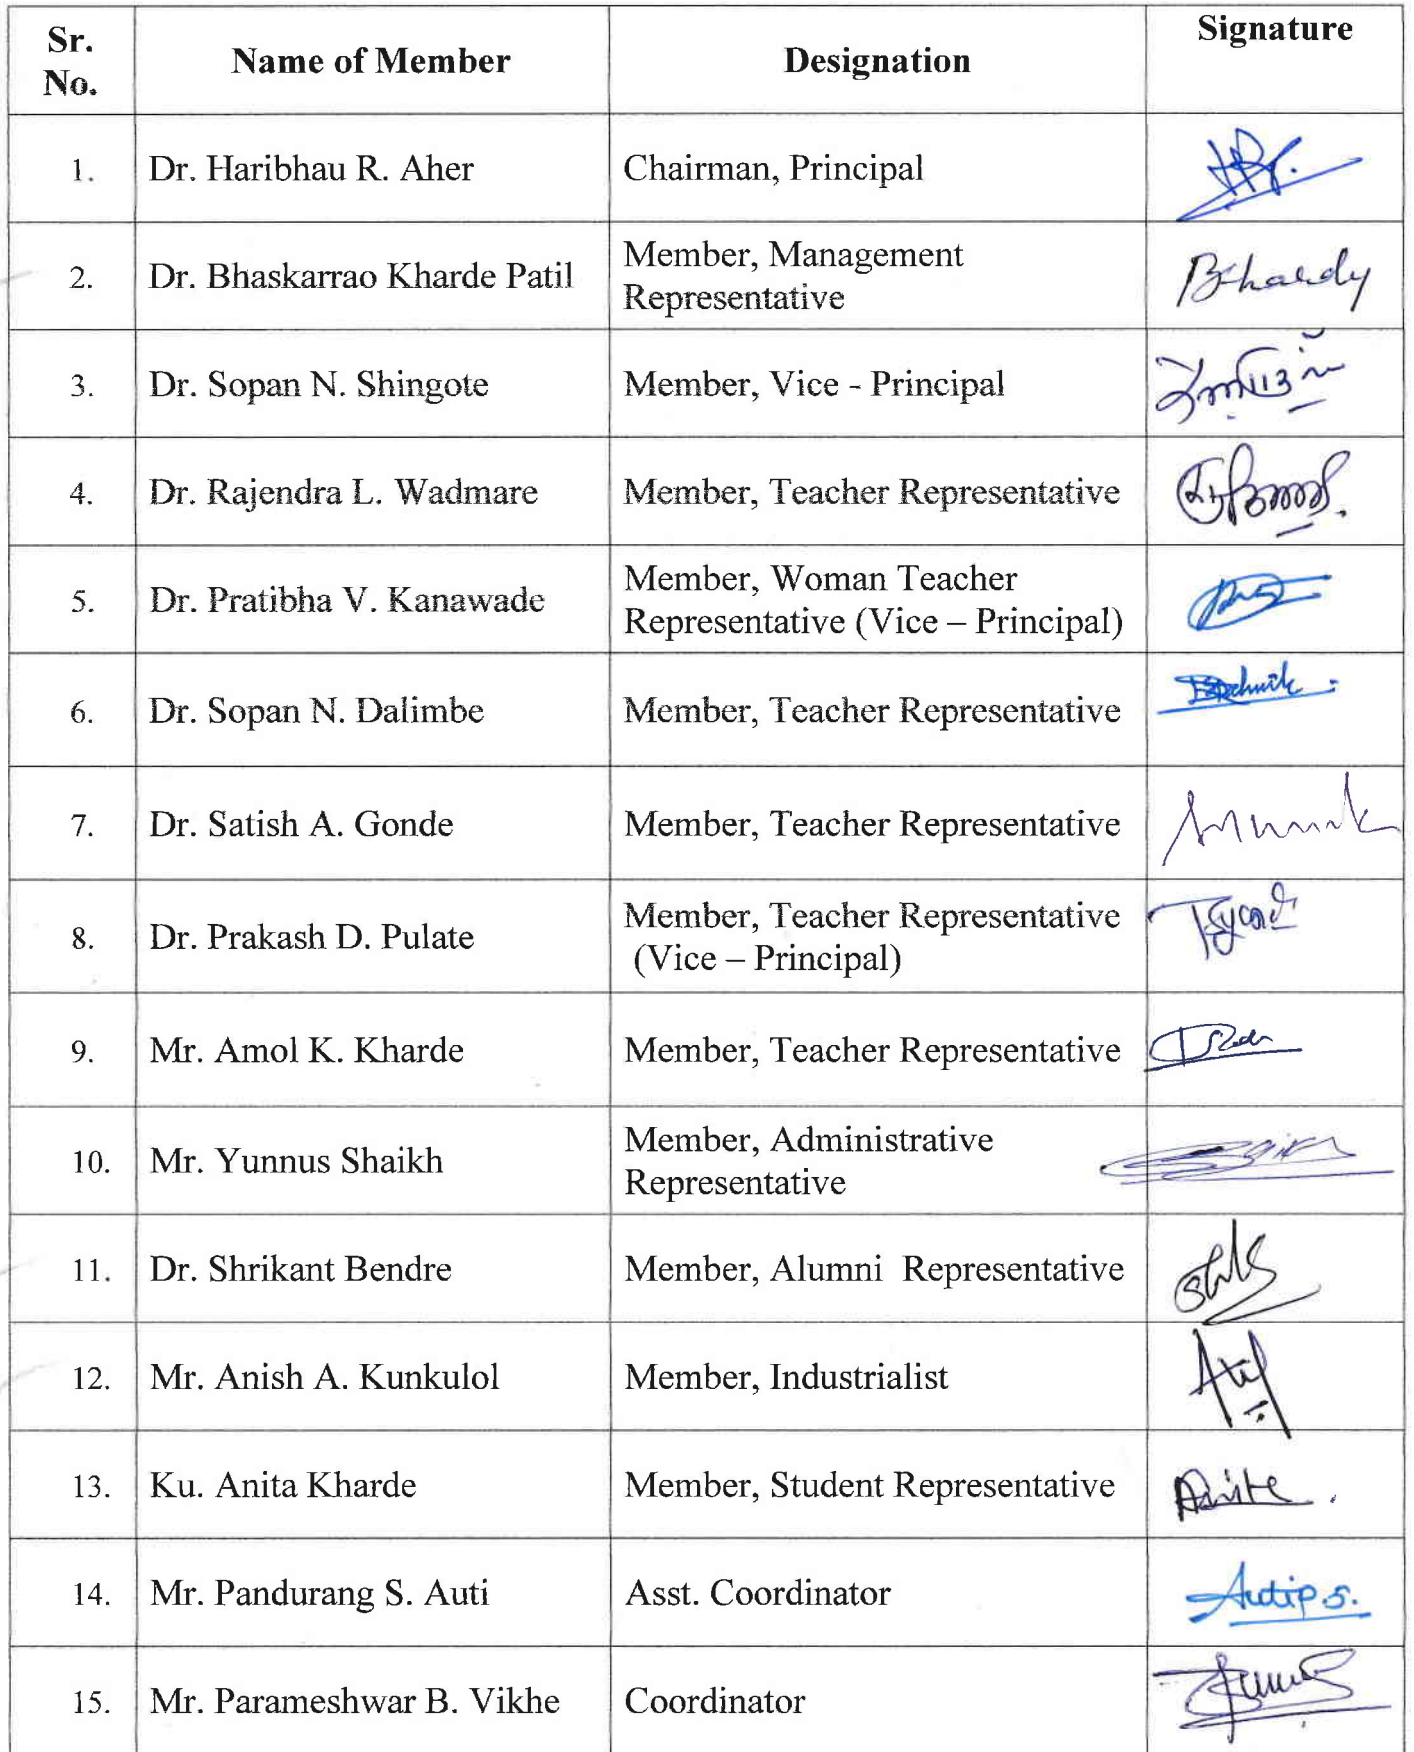 Sr. No. Name of Member Designation Signature
1. Dr. Haribhau R. Aher Chairman, Principal
2. Dr. Bhaskarrao Kharde Patil Member, Management
Representative
3. Dr. Sopan N. Shingote Member, Vice - Principal
4. Dr. Rajendra L. Wadmare Member, Teacher Representative
5. Dr. Pratibha V. Kanawade Member, Woman Teacher
Representative (Vice – Principal)
6. Dr. Sopan N. Dalimbe Member, Teacher Representative
7. Dr. Satish A. Gonde Member, Teacher Representative
8. Dr. Prakash D. Pulate Member, Teacher Representative
(Vice – Principal)
9. Mr. Amol K. Kharde Member, Teacher Representative
10. Mr. Yunnus Shaikh Member, Administrative
Representative
11. Dr. Shrikant Bendre Member, Alumni Representative
12. Mr. Anish A. Kunkulol Member, Industrialist
13. Ku. Anita Kharde Member, Student Representative
14. Mr. Pandurang S. Auti Asst. Coordinator Autips.
15. Mr. Parameshwar B. Vikhe Coordinator